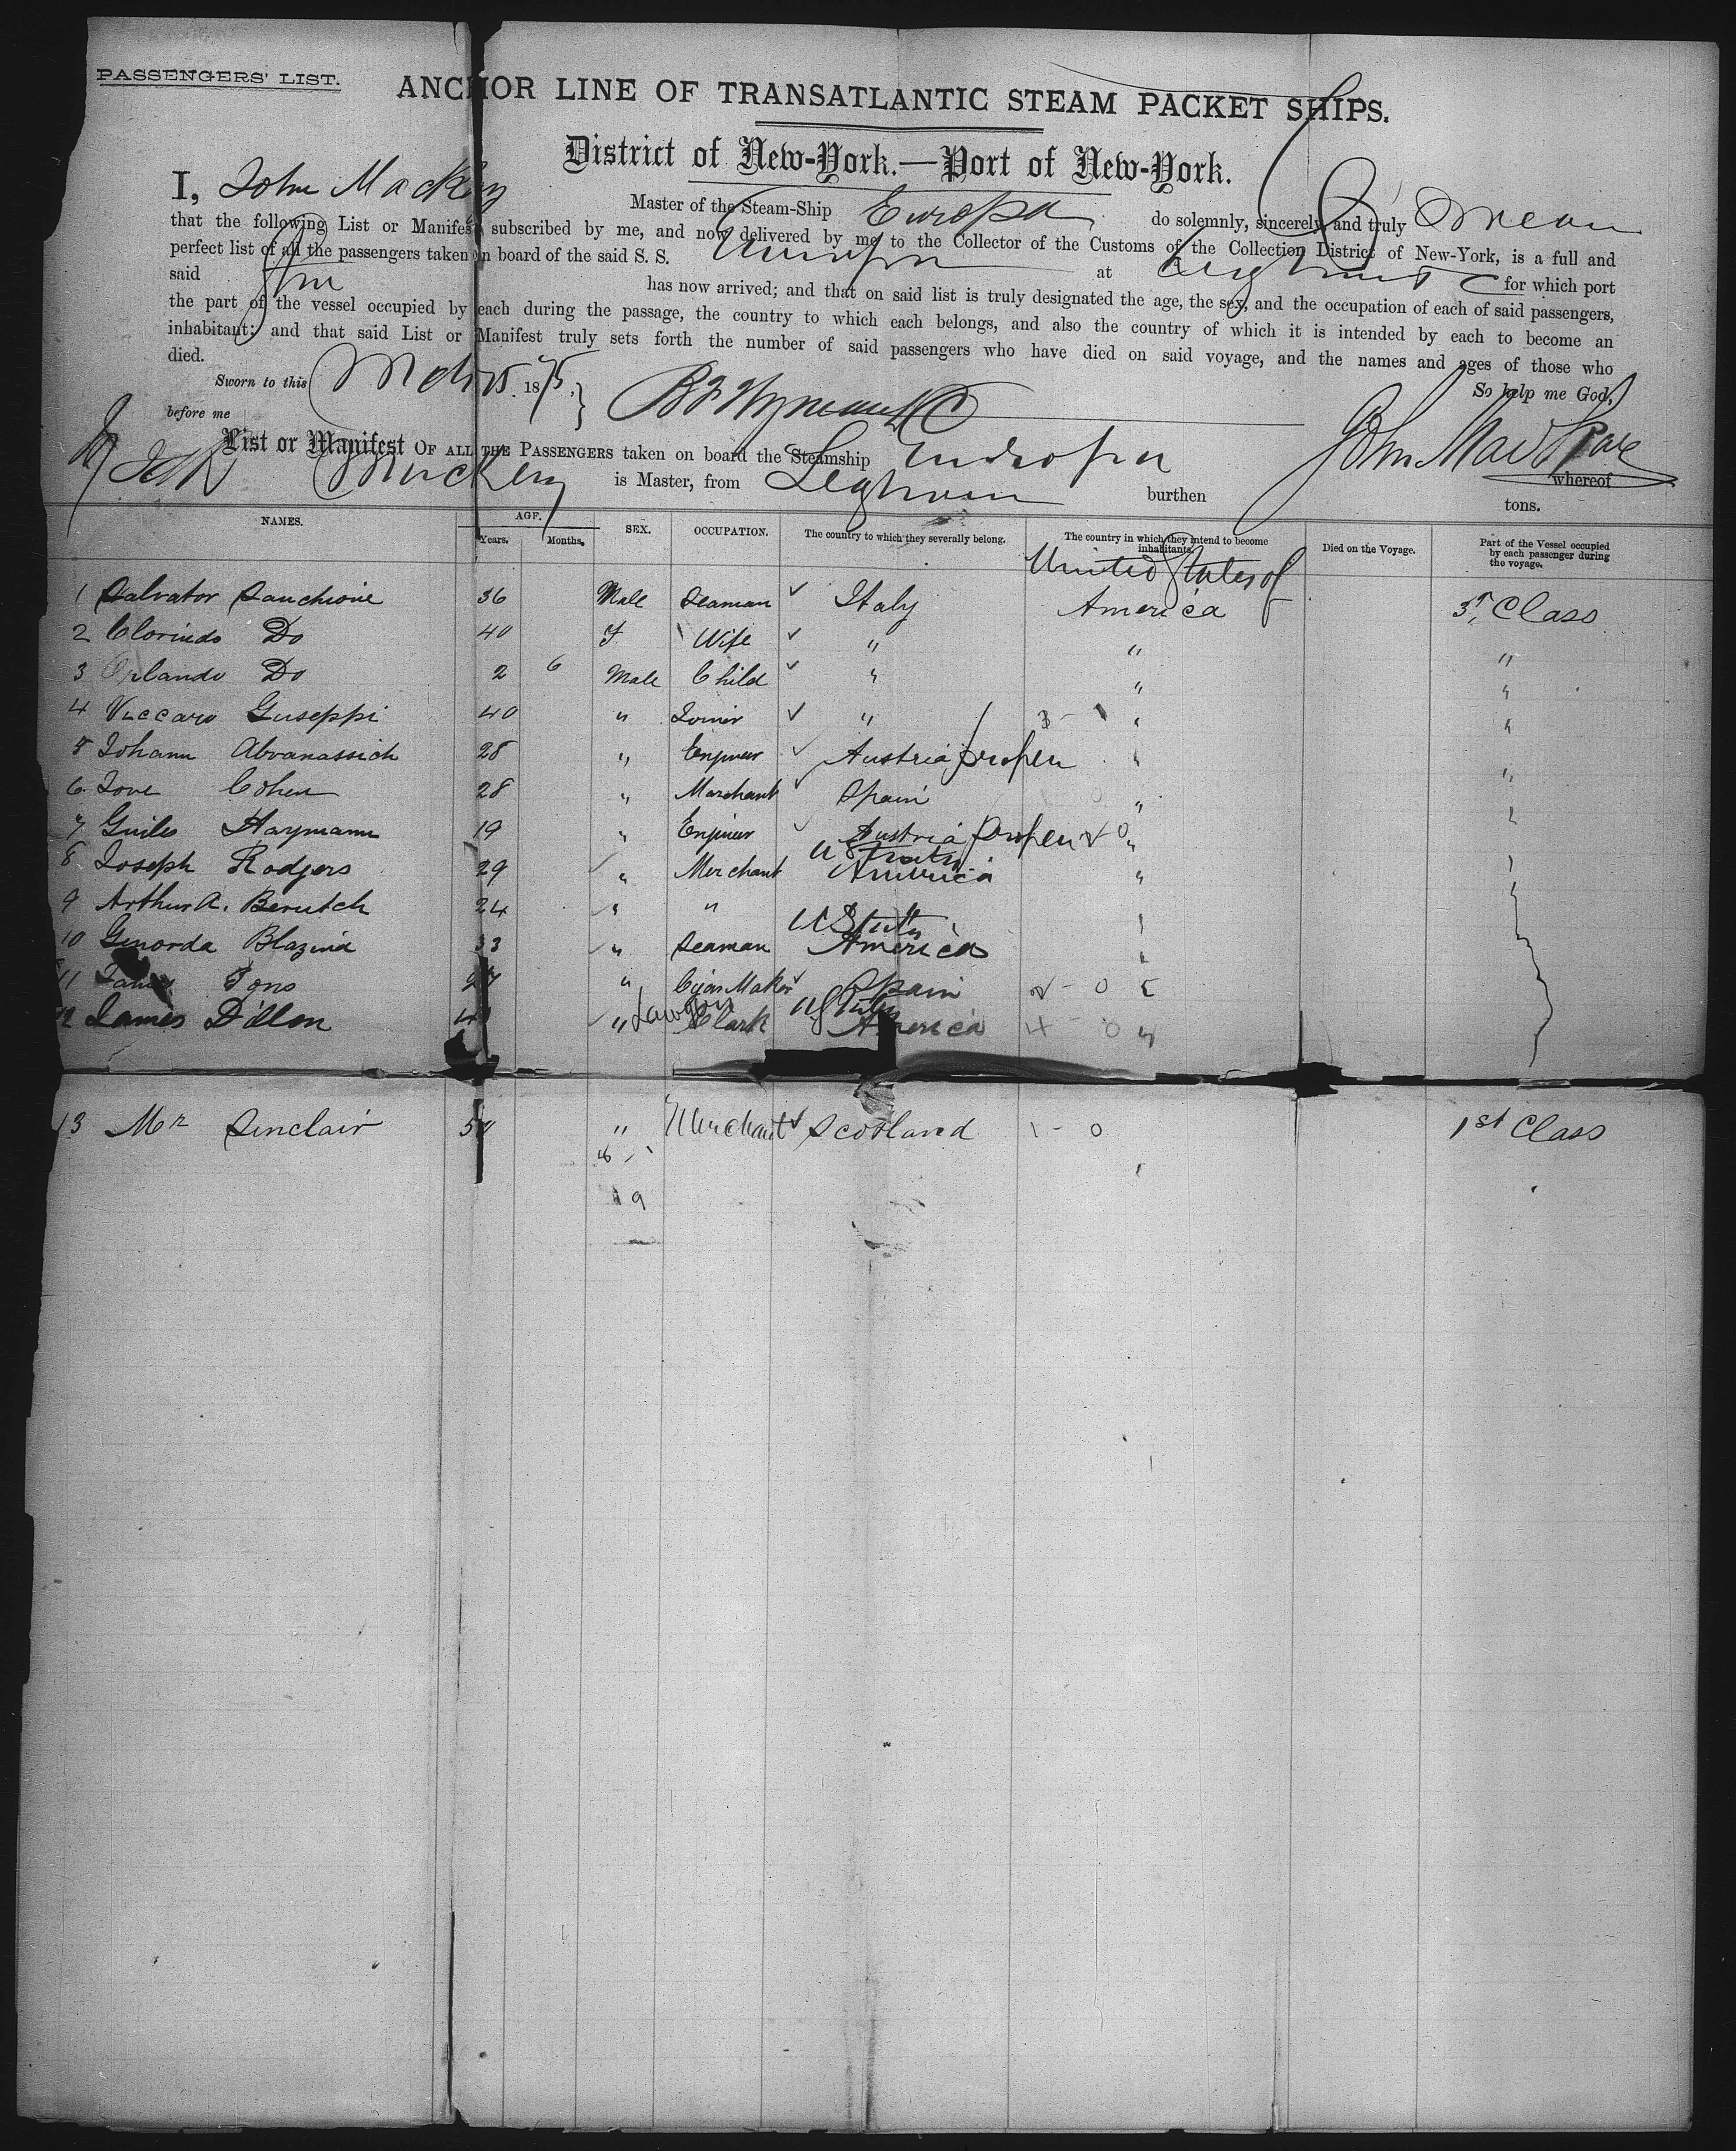 PASSENGERS' LIST.
ANCHOR LINE OF TRANSATLANTIC STEAM PACKET SHIPS.
District of New-York.—Port of New-York.
I, John Mackay Master of the Steam-Ship Europa do solemnly, sincerely and truly Swear
that the following List or Manifest subscribed by me, and now delivered by me to the Collector of the Customs of the Collection District of New-York, is a full and
perfect list of all the passengers taken on board of the said S. S. Europa at Leghorn for which port
said has now arrived; and that on said list is truly designated the age, the sex, and the occupation of each of said passengers,
the part of the vessel occupied by each during the passage, the country to which each belongs, and also the country of which it is intended by each to become an
inhabitant; and that said List or Manifest truly sets forth the number of said passengers who have died on said voyage, and the names and ages of those who
died.
So help me God,
Sworn to this Mch 15 1875.
before me
List or Manifest OF ALL THE PASSENGERS taken on board the Steamship Europa whereof
is Master, from Leghorn burthen tons.
NAMES. AGE. Years. Months. SEX. OCCUPATION. The country to which they severally belong. The country in which they intend to become inhabitants. Died on the Voyage. Part of the Vessel occupied by each passenger during the voyage.
United States of
1 Salvator Sanchione 36 Male Seaman ✓ Italy America 3rd Class
2 Clorindo Do 40 F Wife ✓ " " "
3 Orlando Do 2 6 Male Child ✓ " " "
4 Vaccaro Guseppi 40 " Joiner ✓ " " "
5 Johann Abranassich 28 " Engineer ✓ Austria proper " "
6 Jove Cohen 28 " Merchant ✓ Spain " "
7 Guiles Haymann 19 " Engineer ✓ Austria proper "
8 Joseph Rodgers 29 ✓ " Merchant U States America "
9 Arthur A. Berutch 24 ✓ " " "
10 Genorda Blazina 33 ✓ " Seaman U States America "
11 Pons 27 " Cigar Maker ✓ Spain
12 James Dillon ✓ " Clark U States America "
13 Mr Sinclair " Merchant ✓ Scotland 1 - 0 1st Class